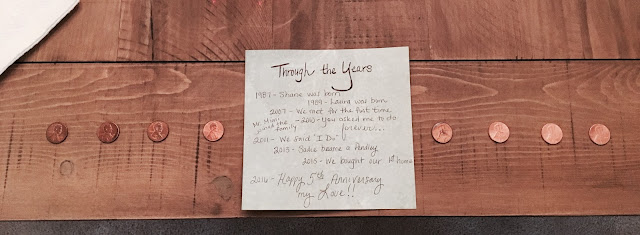 Through the Years
1987 - Shane was born
1989 - Laura was born
2007 - We met for the first time
Mr. Mini joined the family
- 2010 - You asked me to do forever...
2011 - We said "I Do"
2013 - Sadie became a
2015 - We bought our 1st home
2016 - Happy 5th Anniversary
my Love!